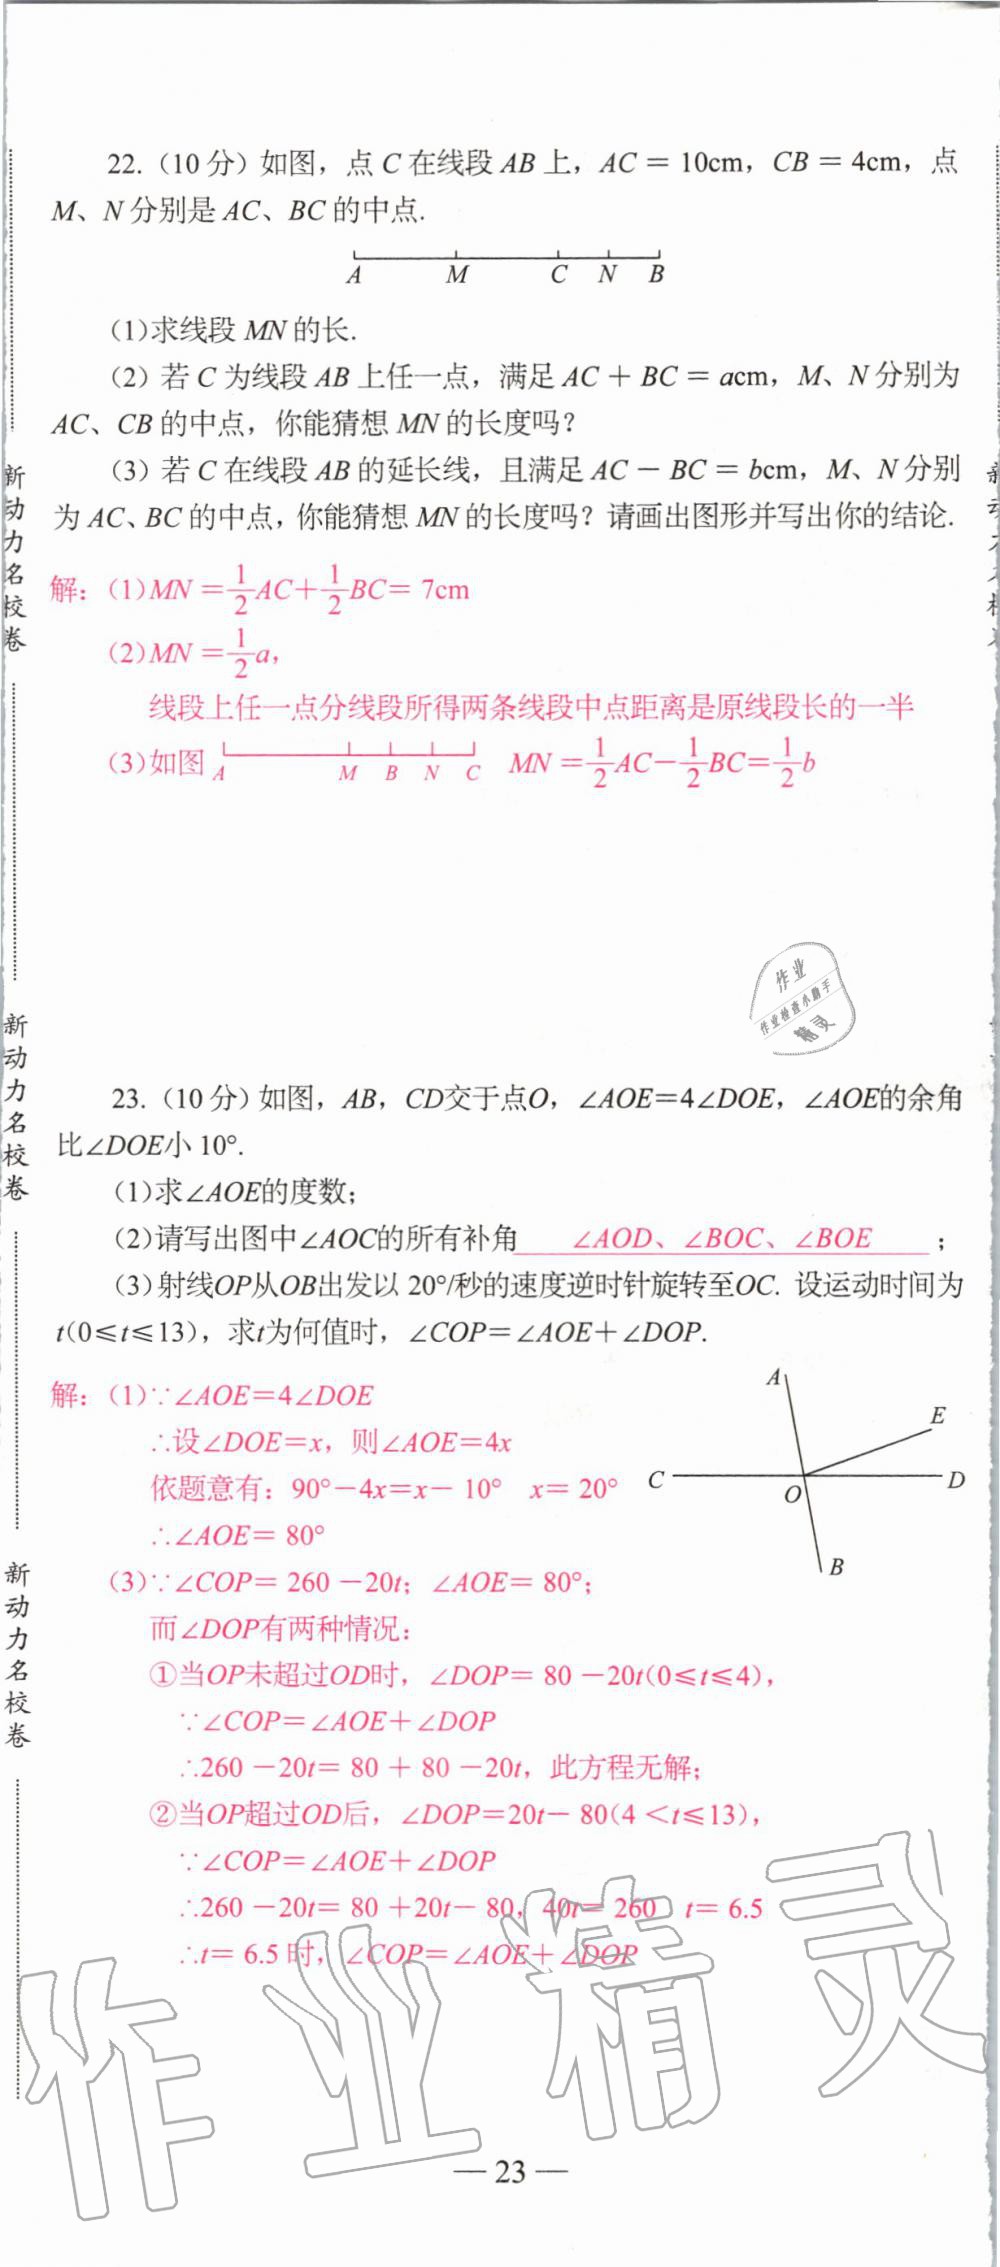 22.（10分）如图，点C在线段AB上，AC＝10cm，CB＝4cm，点
M、N分别是AC、BC的中点.
A M C N B
(1)求线段MN的长.
(2) 若C为线段AB上任一点，满足AC＋BC＝acm，M、N分别为
AC、CB的中点，你能猜想MN的长度吗？
(3) 若C在线段AB的延长线，且满足AC－BC＝bcm，M、N分别
为AC、BC的中点，你能猜想MN的长度吗？请画出图形并写出你的结论.
解：(1)MN＝1/2AC＋1/2BC＝7cm
(2)MN＝1/2a，
线段上任一点分线段所得两条线段中点距离是原线段长的一半
(3)如图 A M B N C MN＝1/2AC－1/2BC＝1/2b
作业
作业检查小助手
精灵
23.（10分）如图，AB，CD交于点O，∠AOE＝4∠DOE，∠AOE的余角
比∠DOE小10°.
(1)求∠AOE的度数；
(2)请写出图中∠AOC的所有补角 ∠AOD、∠BOC、∠BOE ；
(3)射线OP从OB出发以20°/秒的速度逆时针旋转至OC. 设运动时间为
t(0≤t≤13)，求t为何值时，∠COP＝∠AOE＋∠DOP.
解：(1)∵∠AOE＝4∠DOE
∴设∠DOE＝x，则∠AOE＝4x
依题意有：90°－4x＝x－10° x＝20°
∴∠AOE＝80°
A
E
C
O
D
B
(3)∵∠COP＝260－20t；∠AOE＝80°；
而∠DOP有两种情况：
①当OP未超过OD时，∠DOP＝80－20t(0≤t≤4)，
∵∠COP＝∠AOE＋∠DOP
∴260－20t＝80＋80－20t，此方程无解；
②当OP超过OD后，∠DOP＝20t－80(4＜t≤13)，
∵∠COP＝∠AOE＋∠DOP
∴260－20t＝80＋20t－80，40t＝260 t＝6.5
∴t＝6.5时，∠COP＝∠AOE＋∠DOP
作业精灵
— 23 —
新动力名校卷
新动力名校卷
新动力名校卷